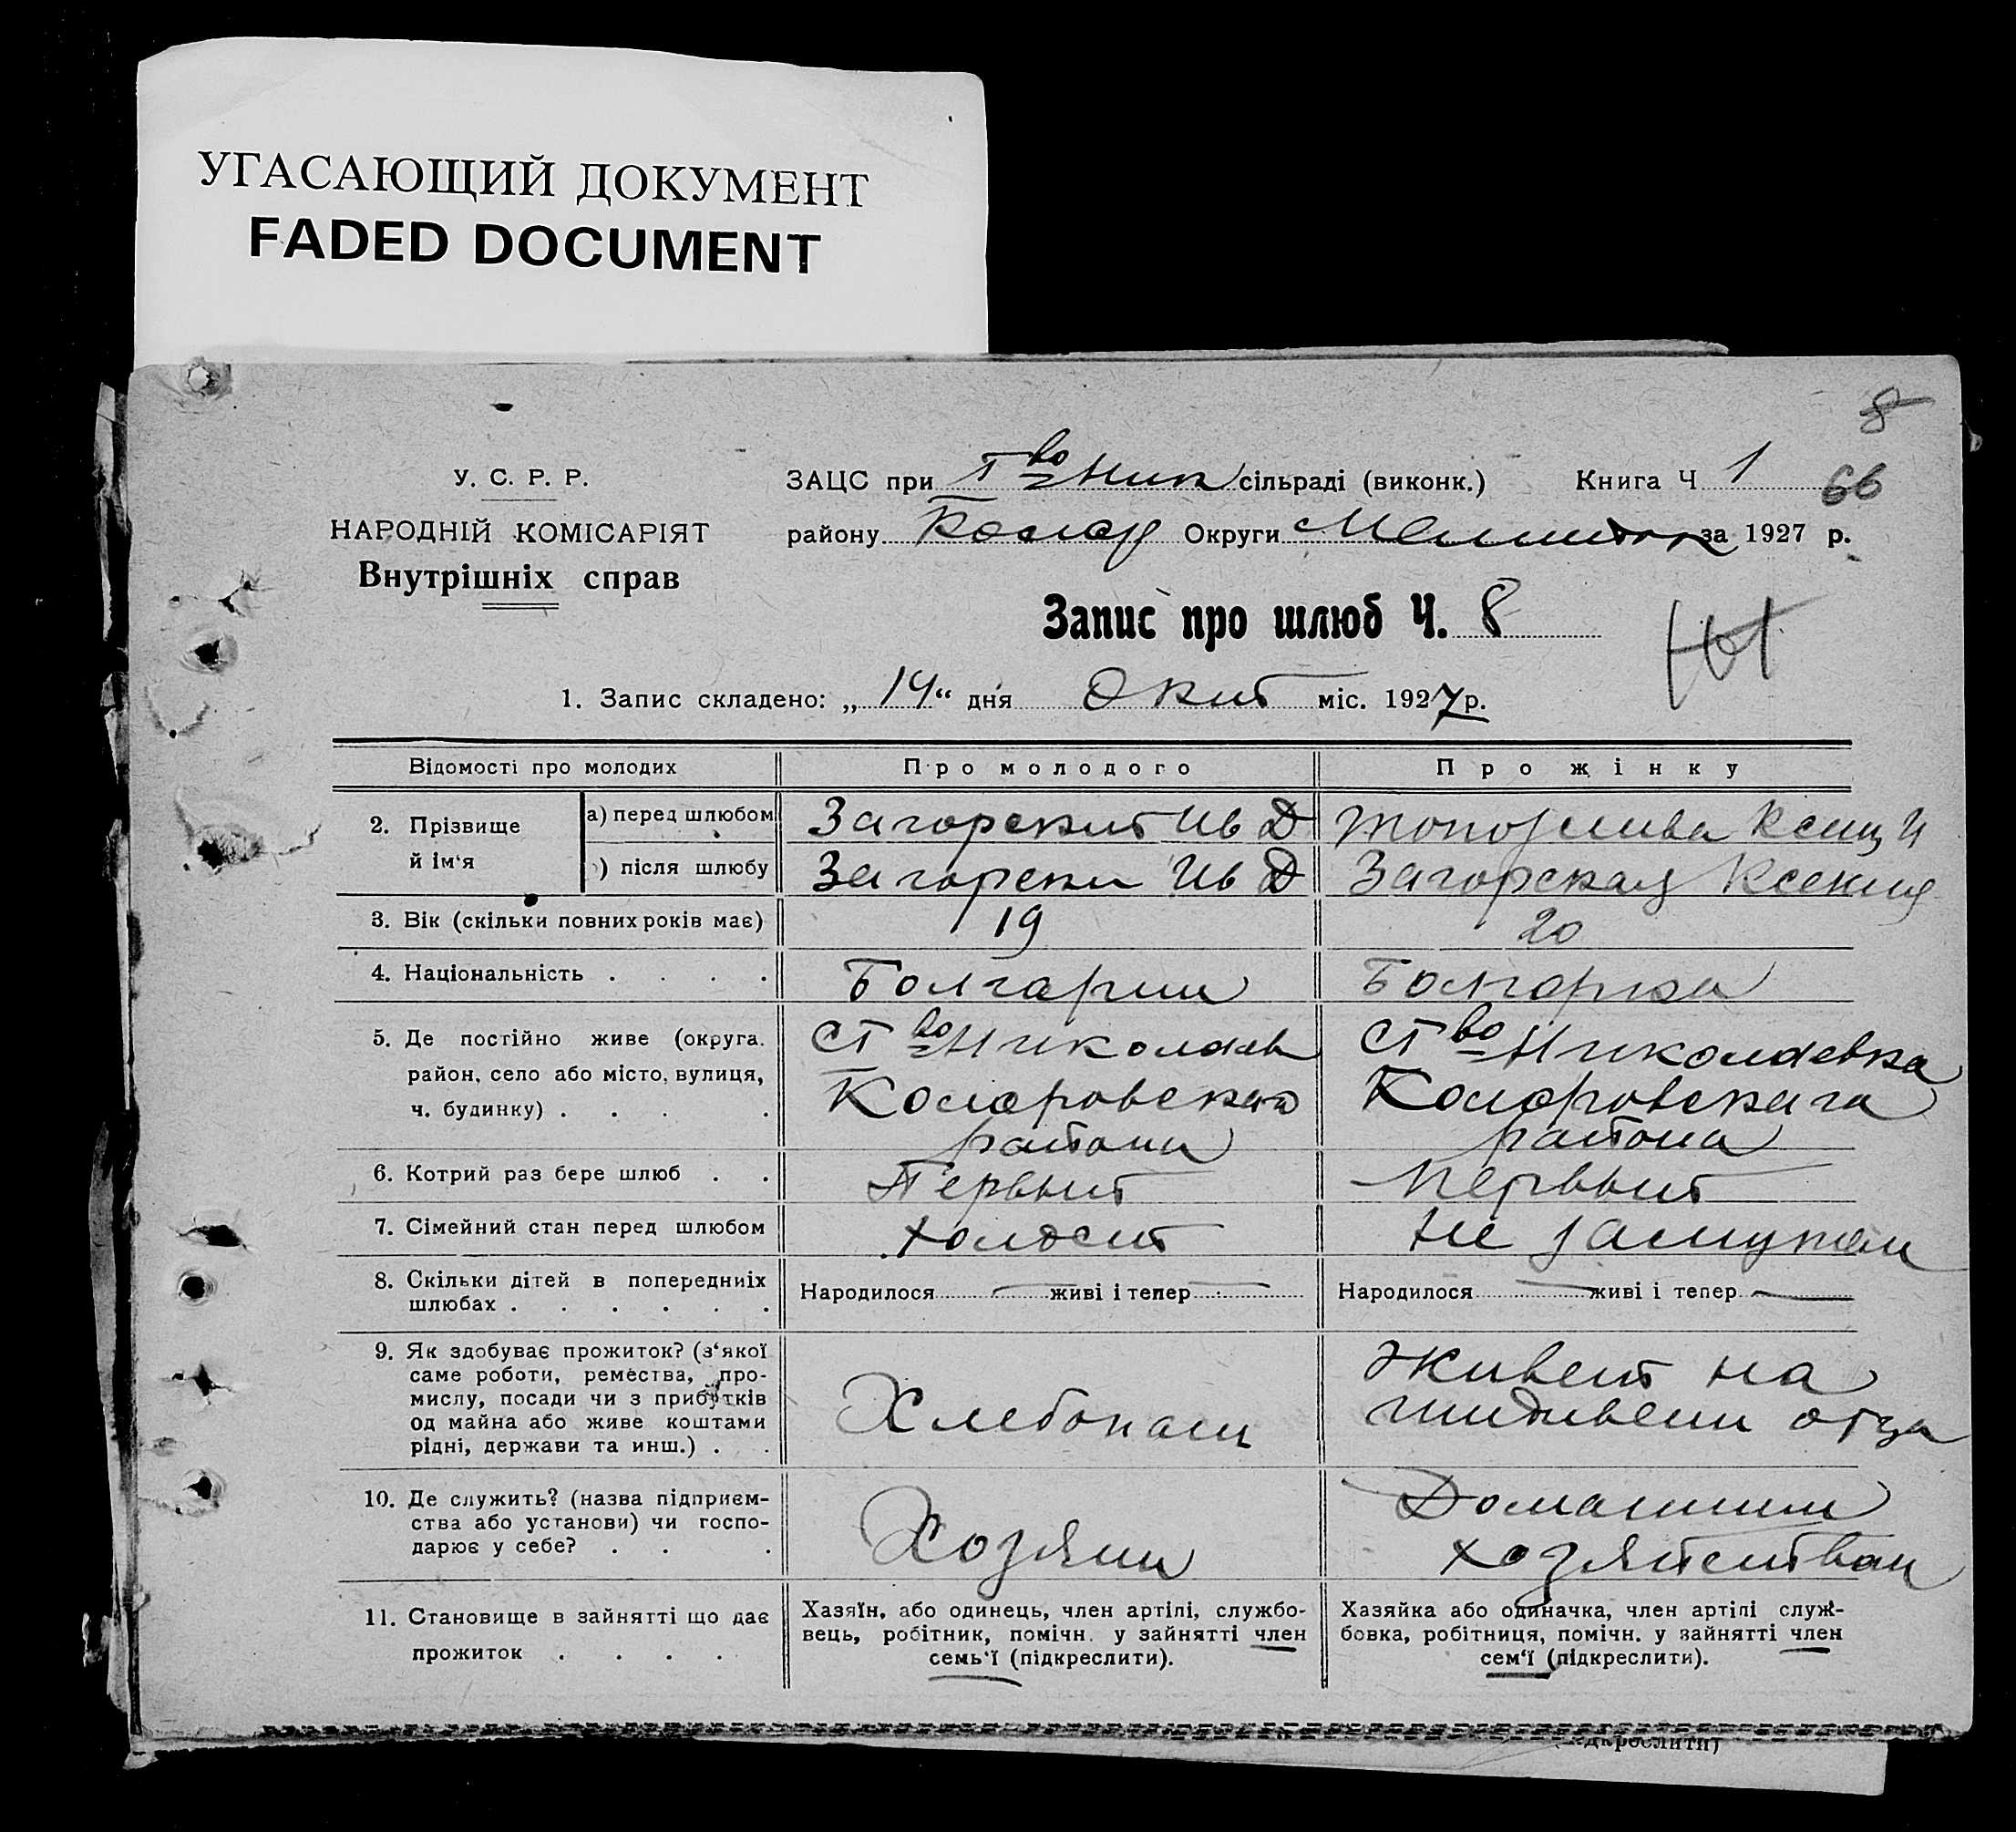 УГАСАЮЩИЙ ДОКУМЕНТ
FADED DOCUMENT
8
У. С. Р. Р.
ЗАЦС при Т во Ник сільраді (виконк.) Книга Ч 1
66
НАРОДНІЙ КОМІСАРІЯТ
району Колар Округи за 1927 р.
Внутрішніх справ
Запис про шлюб Ч. 8
1. Запис складено: „ 14 “ дня Окт міс. 1927 р.
Відомості про молодих Про молодого Про жінку
2. Прізвище й ім‘я
а) перед шлюбом Загорский Ив Д
) після шлюбу Загорски Ив Д Загорская Ксения
3. Вік (скільки повних років має) 19 20
4. Національність . . . . Болгарин Болгарка
5. Де постійно живе (округа. Ст во Николаев Ст во Николаевка
район, село або місто, вулиця, Коларовского Коларовскага
ч. будинку) . . . . района района
6. Котрий раз бере шлюб . . Первый Первый
7. Сімейний стан перед шлюбом холост не замужем
8. Скільки дітей в попередниіх Народилося живі і тепер Народилося живі і тепер
шлюбах . . . . . .
9. Як здобуває прожиток? (з‘якої
саме роботи, ремества, про-
мислу, посади чи з прибутків
од майна або живе коштами
рідні, держави та инш.) . .
Хлебопаш
Живет на
иждивени отца
10. Де служить? (назва підприєм-
ства або установи) чи госпо-
дарює у себе? . . .
Хозяин
Домашним
хозяйством
11. Становище в зайнятті що дає
прожиток . . . .
Хазяїн, або одинець, член артілі, службо-
вець, робітник, помічн. у зайнятті член
семь‘ї (підкреслити).
Хазяйка або одиначка, член артілі служ-
бовка, робітниця, помічн. у зайнятті член
сем‘ї (підкреслити).